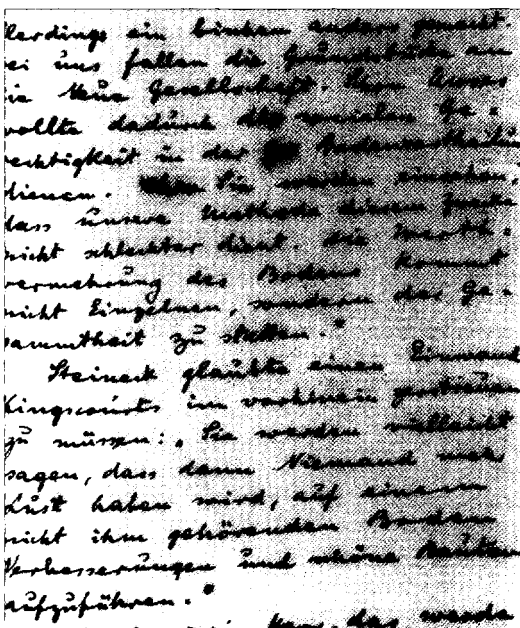 llerdings ein bischen anders gemacht.
ei uns fallen die Grundstücke an
ie Neue Gesellschaft. Ihr Moses
wollte dadurch der socialen Ge-
rechtigkeit in der Bodenvertheilun
dienen. Sie werden einsehen,
dass unsere Methode diesem Zwecke
nicht schlechter dient. Die Werth-
vermehrung des Bodens kommt
nicht Einzelnen, sondern der Ge-
sammtheit zu statten."
Steineck glaubte einen Einwand
Kingscourts im vorhinein zerstreuen
zu müssen: „Sie werden vielleicht
sagen, dass dann Niemand mehr
Lust haben wird, auf einem
nicht ihm gehörenden Boden
Verbesserungen und schöne Bauten
aufzuführen."
das werde